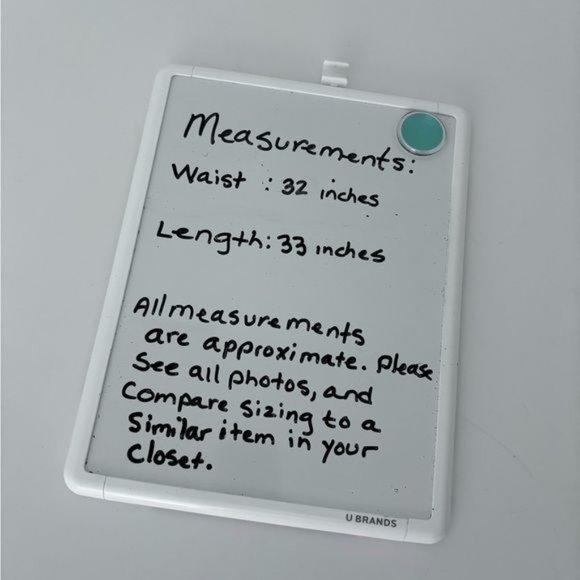 Measurements:
Waist : 32 inches
Length: 33 inches
All measurements
are approximate. Please
See all photos, and
Compare sizing to a
Similar item in your
Closet.
U BRANDS